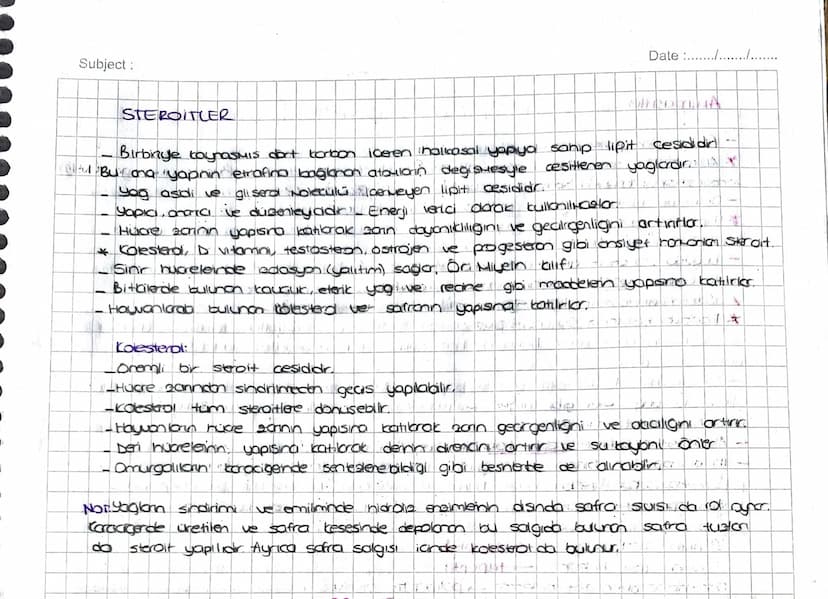 Subject :
Date :......./......./.......
STEROİTLER
- Birbiriyle kaynaşmış dört karbon içeren halkasal yapıya sahip lipit çeşididir.
Bu ana yapının etrafına bağlanan atomların değişmesiyle çeşitlenen yağlardır.
- Yağ asidi ve gliserol molekülü içermeyen lipit çeşididir.
- Yapıcı, onarıcı ve düzenleyicidir. - Enerji verici olarak kullanılmazlar.
- Hücre zarının yapısına katılarak zarın dayanıklılığını ve geçirgenliğini artırırlar.
* Kolesterol, D vitamini, testosteron, östrojen ve progesteron gibi cinsiyet hormonları steroit.
- Sinir hücrelerinde izolasyon (yalıtım) sağlar, Ör: Miyelin kılıf.
- Bitkilerde bulunan kauçuk, eterik yağ ve reçine gibi maddelerin yapısına katılırlar.
- Hayvanlarda bulunan kolesterol ve safranın yapısına katılırlar.
Kolesterol:
- Önemli bir steroit çeşididir.
- Hücre zarından sindirilmeden geçiş yapılabilir.
- Kolestrol tüm steroitlere dönüşebilir.
- Hayvanların hücre zarının yapısına katılarak zarın geçirgenliğini ve artırır.
- Deri hücrelerinin yapısına katılarak derinin direncini artırır ve su kaybını önler
- Omurgalıların karaciğerinde sentezlenebildiği gibi besinlerle de alınabilir.
Not: Yağların sindirimi ve emiliminde hidroliz enzimlerinin dışında safra sıvısı da rol oynar.
Karaciğerde üretilen ve safra kesesinde depolanan bu salgıda bulunan safra tuzları
da steroit yapılıdır. Ayrıca safra salgısı içinde kolestrol da bulunur.